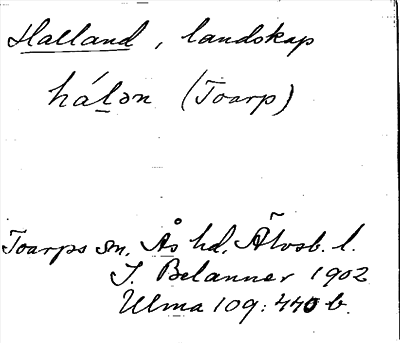 Halland, landskap
hálən (Toarp)
Toarps sn, Ås hd, Älvsb. l.
J. Belanner 1902
Ulma 109:440 b.